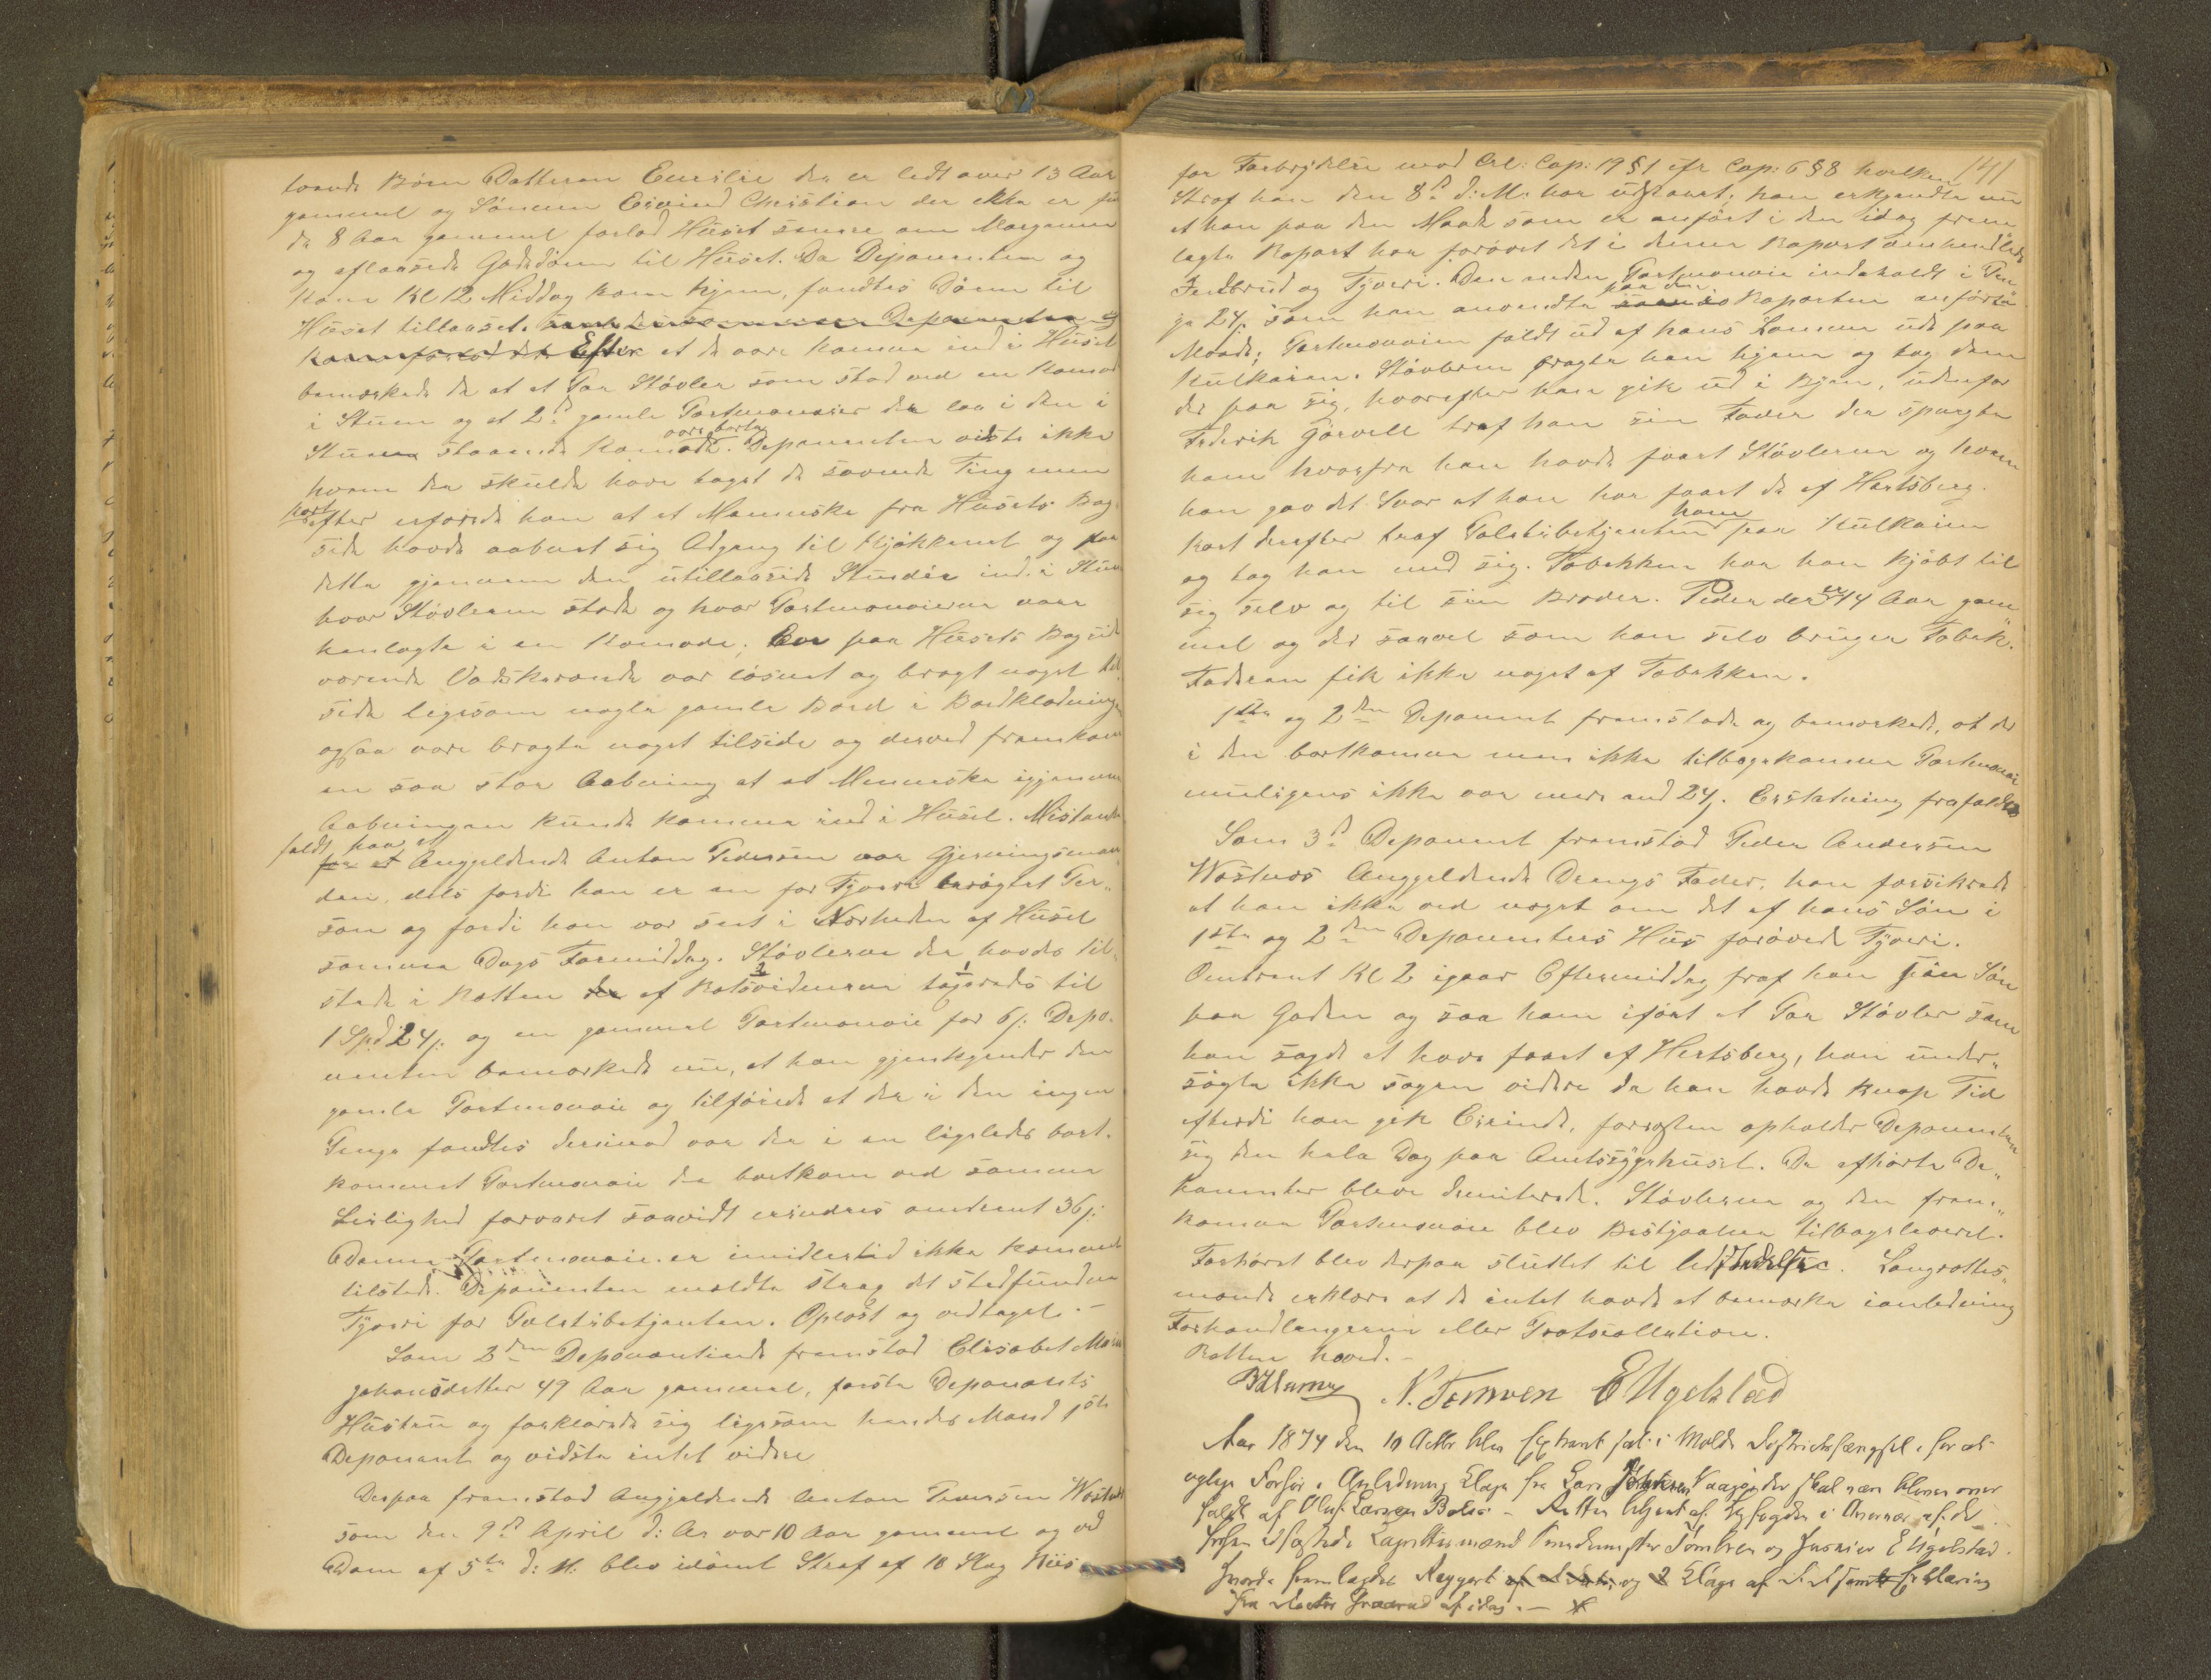 toende Børn Datteren Emilie der er lidt over 13 Aar
gammel og Sönnen Eivind Christian der ikke er
da 8 Aar gammel forlod Huset samme om Morgenen
og aflaasede Gadedören til Huset. Da Deponenten og
Kone Kl 12 Middag kom hjem, fandtes Dören til
Huset tillaaset.
Efter at de vare komne ind i Huset
bemærkede de at et Par Støvler som stod ved en Komode
i Stuen og et 2d gamle Portmonaier der laa i den i
Stuen staaende Komode vare borte. Deponenten vidste ikke
hvem der skulde have taget de savnede Ting men
kort efter erfarede han at et Menneske fra Husets Bag-
side havde aabnet sig Adgang til Kjøkkenet og fra
dette gjennem den utillaasede Stuedör ind i Stuen
hvor Støvlerne stode og hvor Portmonaierne vare
henlagte i en Komode; En paa Husets Bagside
værende Vadskerende var løsnet og bragt noget til
side ligesom nogle gamle Bord i Bordklædningen
ogsaa vare bragte noget tilside og derved fremkom
en saa stor Aabning at et Menneske igjennem
Aabningen kunde komme ind i Huset. Mistanke
faldt paa at Angjeldende Anton Pedersen var Gjerningsman-
den, dels fordi han er en for Tyveri berøgtet Per-
son og fordi han var seet i Nærheden af Huset
samme Dags Formiddag. Støvlerne der havdes til-
stede i Retten af Retsvidnerne taxeredes til
1 Spd 24 s: og en gammel Portmonaie for 6 s: Depo-
nenten bemærkede nu, at han gjenkjender den
gamle Portmonaie og tilføiede at der i den ingen
Penge fandtes derimod var der i en ligeledes bort-
kommet Portmonaie der bortkom ved samme
Leilighed forvaret saavidt erindres omtrent 36 s:
Denne Portmonaie er imidlertid ikke kommet
tilstede. Deponenten meldte strax det stedfundne
Tyveri for Politibetjenten. Oplæst og vedtaget.-
Som 2den Deponentinde fremstod Elisabet Marie
Johansdatter 49 Aar gammel, første Deponents
Hustru og forklarede sig ligesom hendes Mand 1ste
Deponent og vidste intet videre
Derpaa fremstod Angjeldende Anton Pedersen
som den 9d April d: Ar var 10 Aar gammel og ved
Dom af 5te d: M: blev idömt Straf af 10 Slag Riis
141
for Forbrydelse mod Crl: Cap: 19 § 1 cfr Cap: 6 § 8 hvilken
Straf han den 8d d: M: har udstaaet; han erkjendte nu
at han paa den Maade som er anført i den idag frem-
lagte Raport har forøvet det i denne Raport omhandlede
Indbrud og Tyveri. Den anden Portmonaie indeholdt i Pen-
ge 24 s som han anvendte paa den i Raporten anførte
Maade; Portmonaien faldt ud af hans Lomme ude paa
Kulkaien. Støvlerne bragte han hjem og tog dem
der paa sig, hvorefter han gik ud i Byen, udenfor
Frederik Gørvell traf han sin Fader der spurgte
ham hvorfra han havde faaet Støvlerne og hvem
han gav det Svar at han har faaet de af Hertsberg.
Kort derefter traf Politibetjenten ham paa Kulkaien
og tog han med sig. Tobakken har han kjøbt til
sig selv og til sin Broder. Peder der er 14 Aar gam-
mel og der saavel som han selv bruger Tobak.
Faderen fik ikke noget af Tobakken.
1ste og 2den Deponent fremstode og bemærkede, at der
i den bortkomne men ikke tilbagekomne Portmonaie
muligens ikke var mere end 24 s. Erstatning frafaldes
Som 3d Deponent fremstod Peder Andersen
Angjeldende Drengs Fader, han forsikrede
at han ikke ved noget om det af hans Sön i
1ste og 2den Deponenters Hus forøvede Tyveri.
Omtrent Kl 2 igaar Eftermiddag traf han sin Sön
paa Gaden og saa ham iført et Par Støvler som
han sagde at have faaet af Hertsberg, han under-
søgte ikke sagen videre da han havde knap Tid
efterdi han gik Erinde, forresten opholder Deponenten
sig den hele Dag paa Amtssygehuset. De afhørte De-
ponenter bleve dimiterede. Støvlerne og den frem-
komne Portmonaie blev Bestjaalne tilbageleveret.
Forhøret blev derpaa sluttet til Udfærdigelse. Laugrettes-
mænd erklære at de intet havde at bemærke i anledning
Forhandlingerne eller Protocollationen.
Retten hævet.-
N. Tømren E Ugelstad
Aar 1874 den 10 Octbr blev Extraret sat i Molde Distriktsfængsel for at
optage Forhör i Anledning Klage fra Lars der skal være bleven over
faldt af Oluf Larsen - Retten betjent af Byfogden i Overvær af de
Laugrettesmænd Tømren og E Ugelstad.
fremlagdes Rapport og Klage af
fra Doctor af idag. -